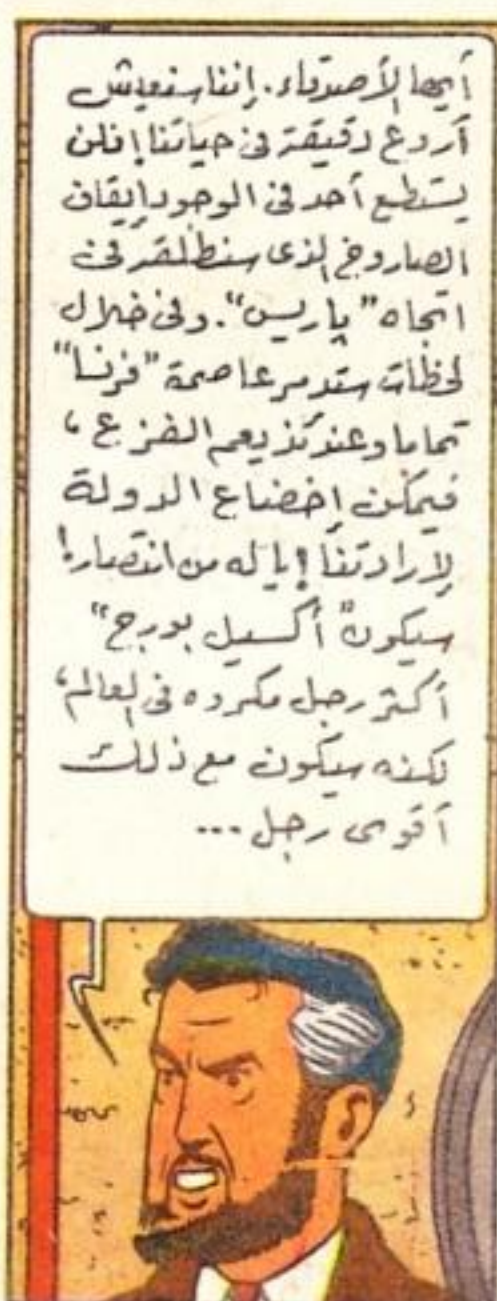 أيها الأصدقاء. إننا سنعيش
أروع دقيقة فى حياتنا! فلن
يستطيع أحد فى الوجود إيقاف
الصاروخ الذى سنطلقه فى
اتجاه "باريس". وفى خلال
لحظات ستدمر عاصمة "فرنسا"
تماما وعندئذ يعم الفزع،
فيمكن إخضاع الدولة
لإرادتنا! ياله من انتصار!
سيكون "أكسيل بورج"
أكثر رجل مكروه فى العالم،
لكنه سيكون مع ذلك
أقوى رجل...